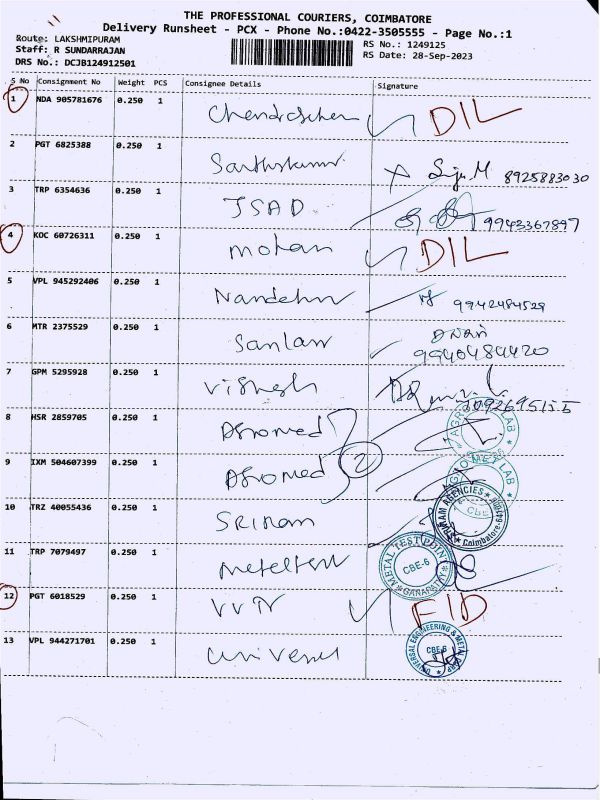 THE PROFESSIONAL COURIERS, COIMBATORE
Delivery Runsheet - PCX - Phone No.:0422-3505555 - Page No.:1
Route: LAKSHMIPURAM
Staff: R SUNDARRAJAN
DRS No.: DCJB124912501
RS No.: 1249125
RS Date: 28-Sep-2023
S No Consignment No Weight PCS Consignee Details Signature
1 NDA 905781676 0.250 1 DIL
2 PGT 6825388 0.250 1 8925883030
3 TRP 6354636 0.250 1 JSAD 9943367897
4 KOC 60726311 0.250 1 mohan DIL
5 VPL 945292406 0.250 1 9942484529
6 MTR 2375529 0.250 1 Sanlam
9940484420
7 GPM 5295928 0.250 1 Vishesh
8 HSR 2859705 0.250 1 Agromed
9 IXM 504607399 0.250 1 Agromed 2
10 TRZ 40055436 0.250 1 SRIRAM
AGENCIES Coimbatore
11 TRP 7079497 0.250 1
METAL TEST POINT CBE-6 GANAPATHY
12 PGT 6018529 0.250 1 FID
13 VPL 944271701 0.250 1
UNIVERSAL ENGINEERING & METAL CBE-6